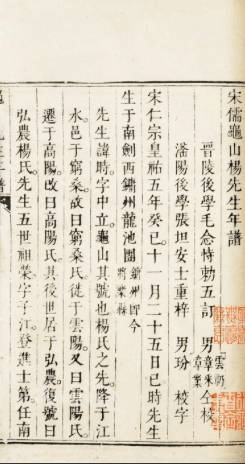 宋儒龜山楊先生年譜
晉陵後學毛念恃勅五訂 男 雲翀 章來 章業 仝校
潘陽後學張坦安士重梓 男玢 校字
宋仁宗皇祐五年癸巳十一月二十五日巳時先生
生于南劍西鏞州龍池團 鏞州卽今將樂縣
先生諱時字中立龜山其號也楊氏之先降于江
水邑于窮桑故曰窮桑氏徙于雲陽又曰雲陽氏
遷于高陽改曰高陽氏其後世居于弘農復號曰
弘農楊氏先生五世祖榮字子江登進士第任南